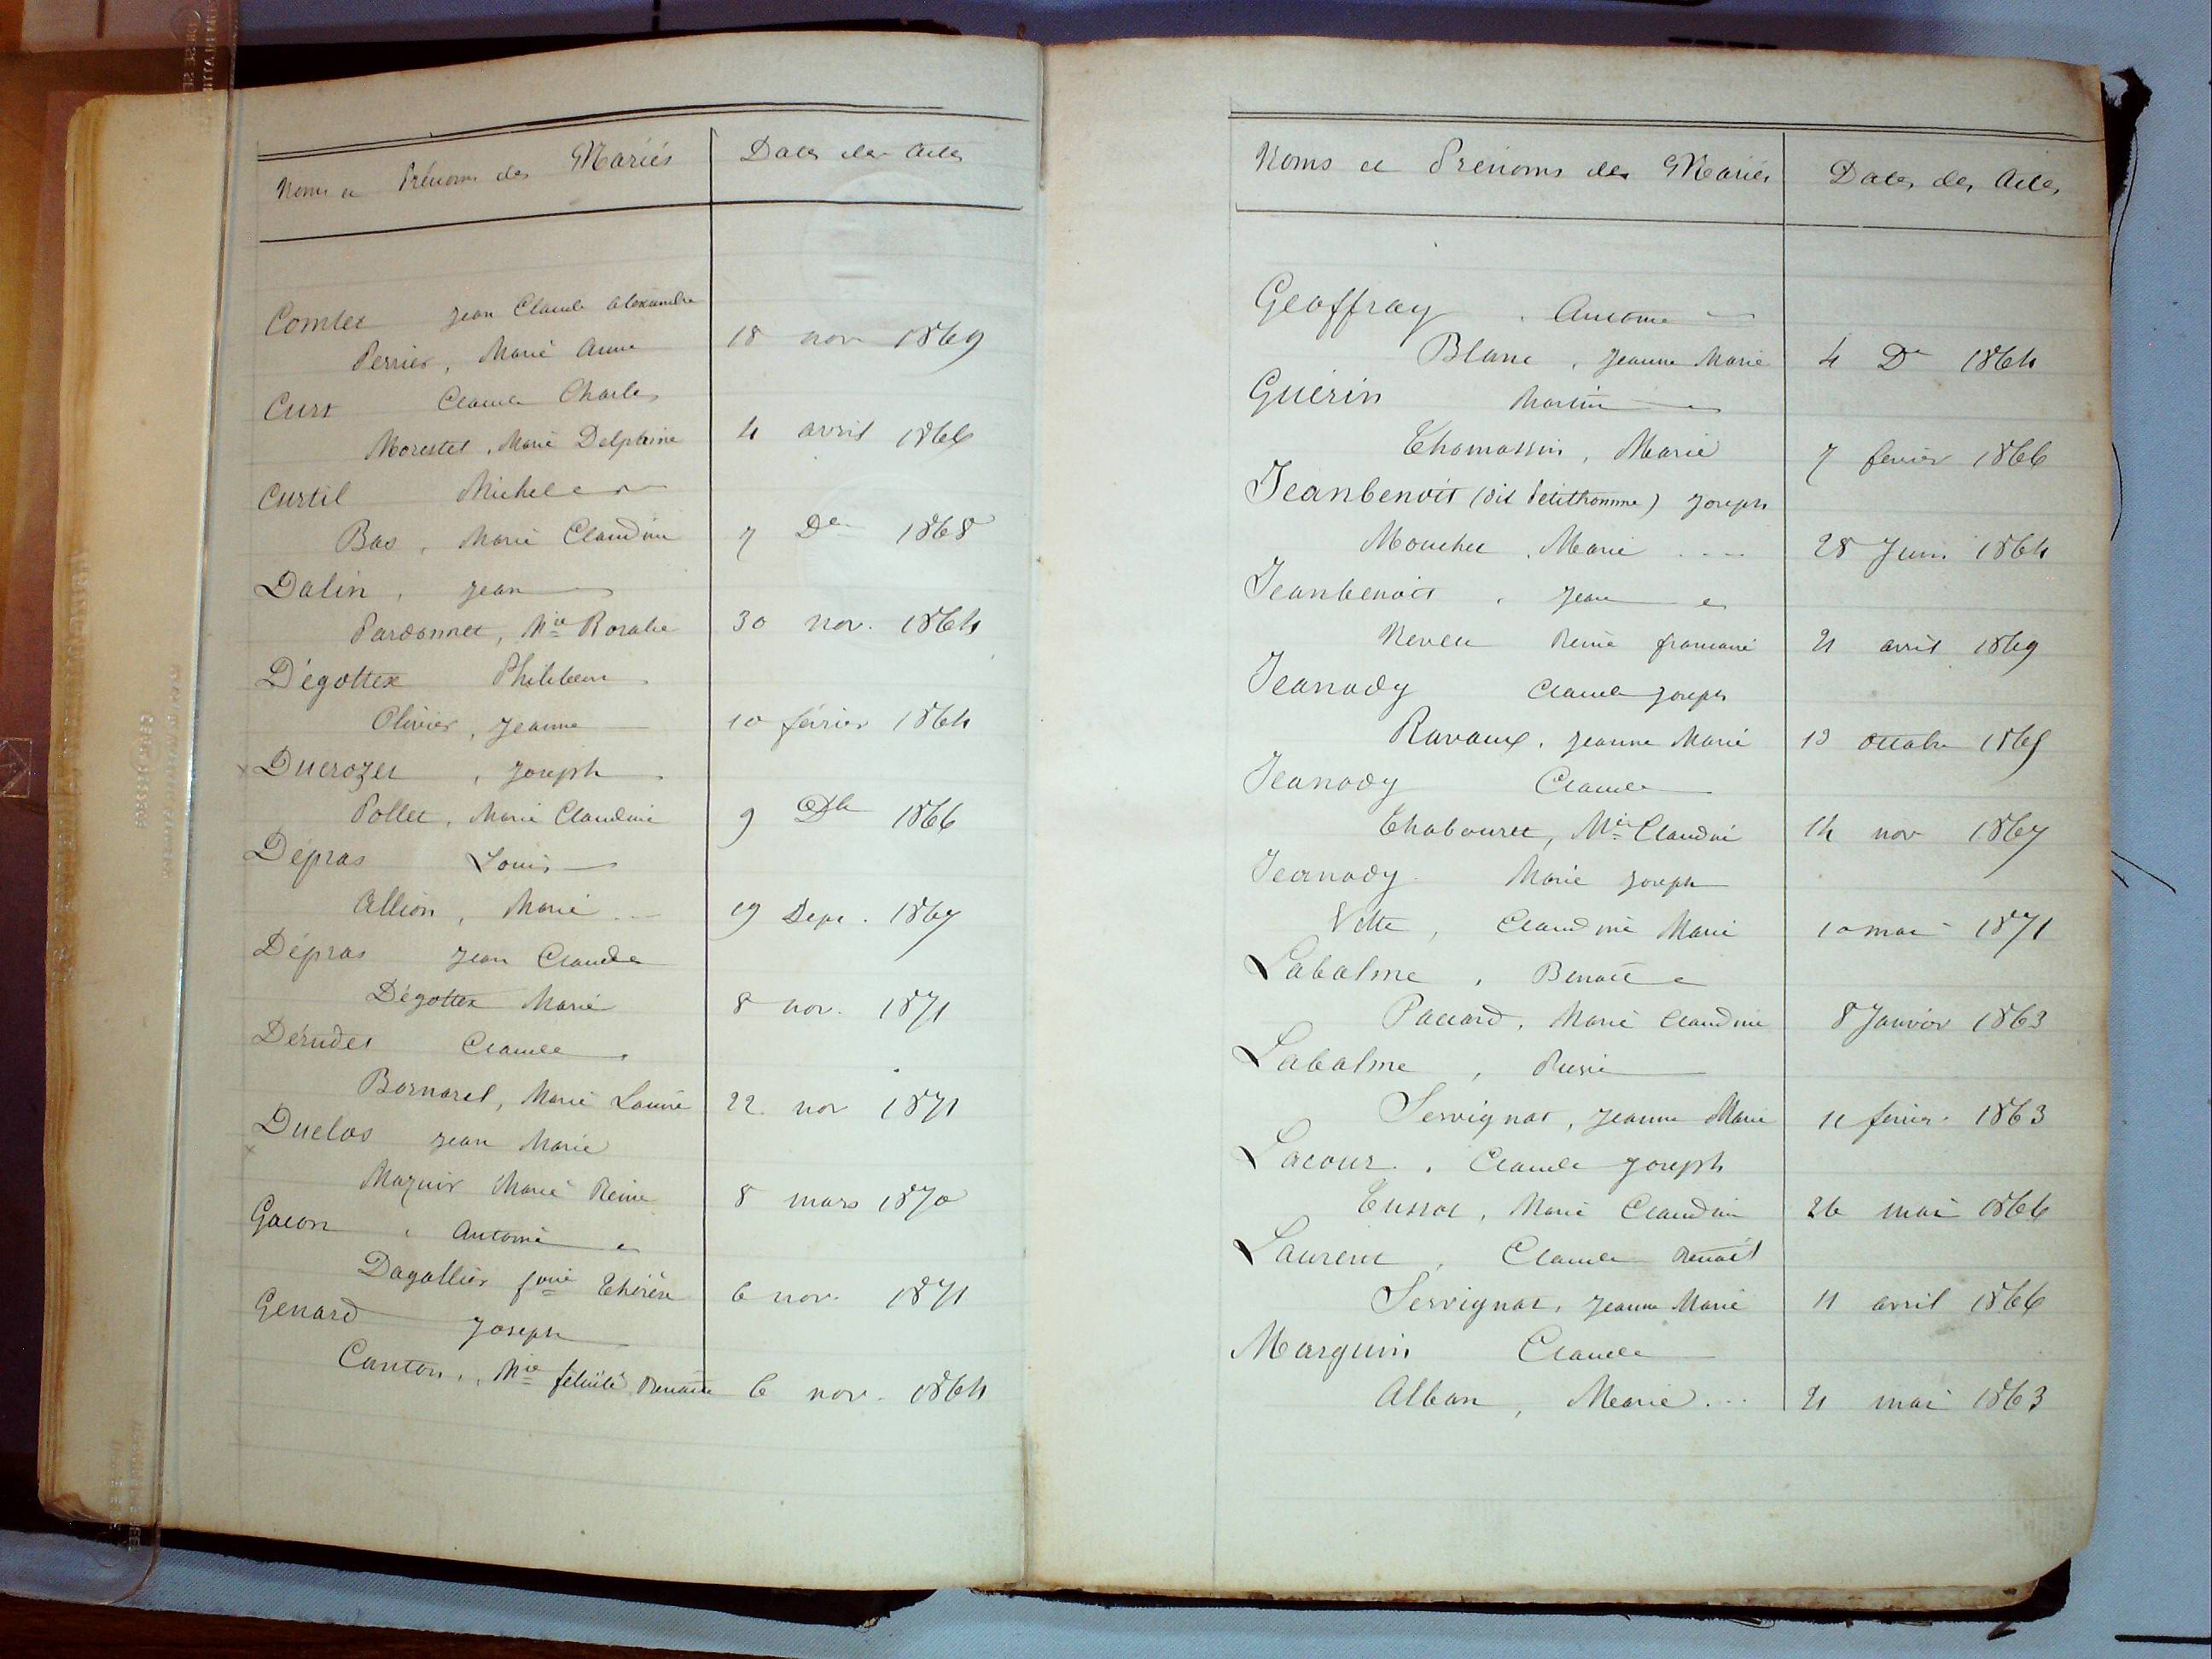 Noms et Prénoms des Mariés Dates des Actes
Comtet Jean Claude Alexandre
Perrier, Marie Anne 18 nov 1869
Curt Claude Charles
Morestel, Marie Delphine 4 avril 1866
Curtil Michel
Bas, Marie Claudine 7 Dre 1868
Dalin, Jean
Pardonnet, Mie Rosalie 30 nov. 1864
Dégottex Philibert
Olivier, Jeanne 10 février 1864
Ducrozet, Joseph
Pollet, Marie Claudine 9 Dbre 1866
Dépras Louis
Allion, Marie 19 Sept. 1867
Dépras Jean Claude
Dégottex Marie 8 nov. 1871
Dérudet Claude
Bornarel, Marie 22 nov 1871
Duclos Jean Marie
Mazuir Marie Reine 8 mars 1870
Gacon, Antoine
Dagallier Thérèse 6 nov. 1871
Genard Joseph
Canton, Mie félicité 6 nov. 1864
Noms et Prénoms des Mariés Dates des Actes
Geoffray, Antoine
Blanc, Jeanne Marie 4 Dre 1864
Guérin Martin
Thomassin, Marie 7 février 1866
Jeanbenoit (dit Petithomme) Joseph
Mouchet, Marie 28 Juin 1864
Jeanbenoit, Jean
Neveu Reine 21 avril 1869
Jeanody Claude Joseph
Ravaux, Jeanne Marie 13 octobre
Jeanody Claude
Chabouret, Mie Claudine 14 nov 1867
Jeanody Marie Joseph
Vette, Claudine Marie 10 mai 1871
Labalme, Benoit
Paccard, Marie Claudine 8 Janvier 1863
Labalme,
Servignat, Jeanne Marie 11 février 1863
Lacour, Claude Joseph
Marie Claudine 26 mai 1866
Laurent, Claude Benoit
Servignat, Jeanne Marie 11 avril 1866
Marguin Claude
Alban, Marie 21 mai 1863